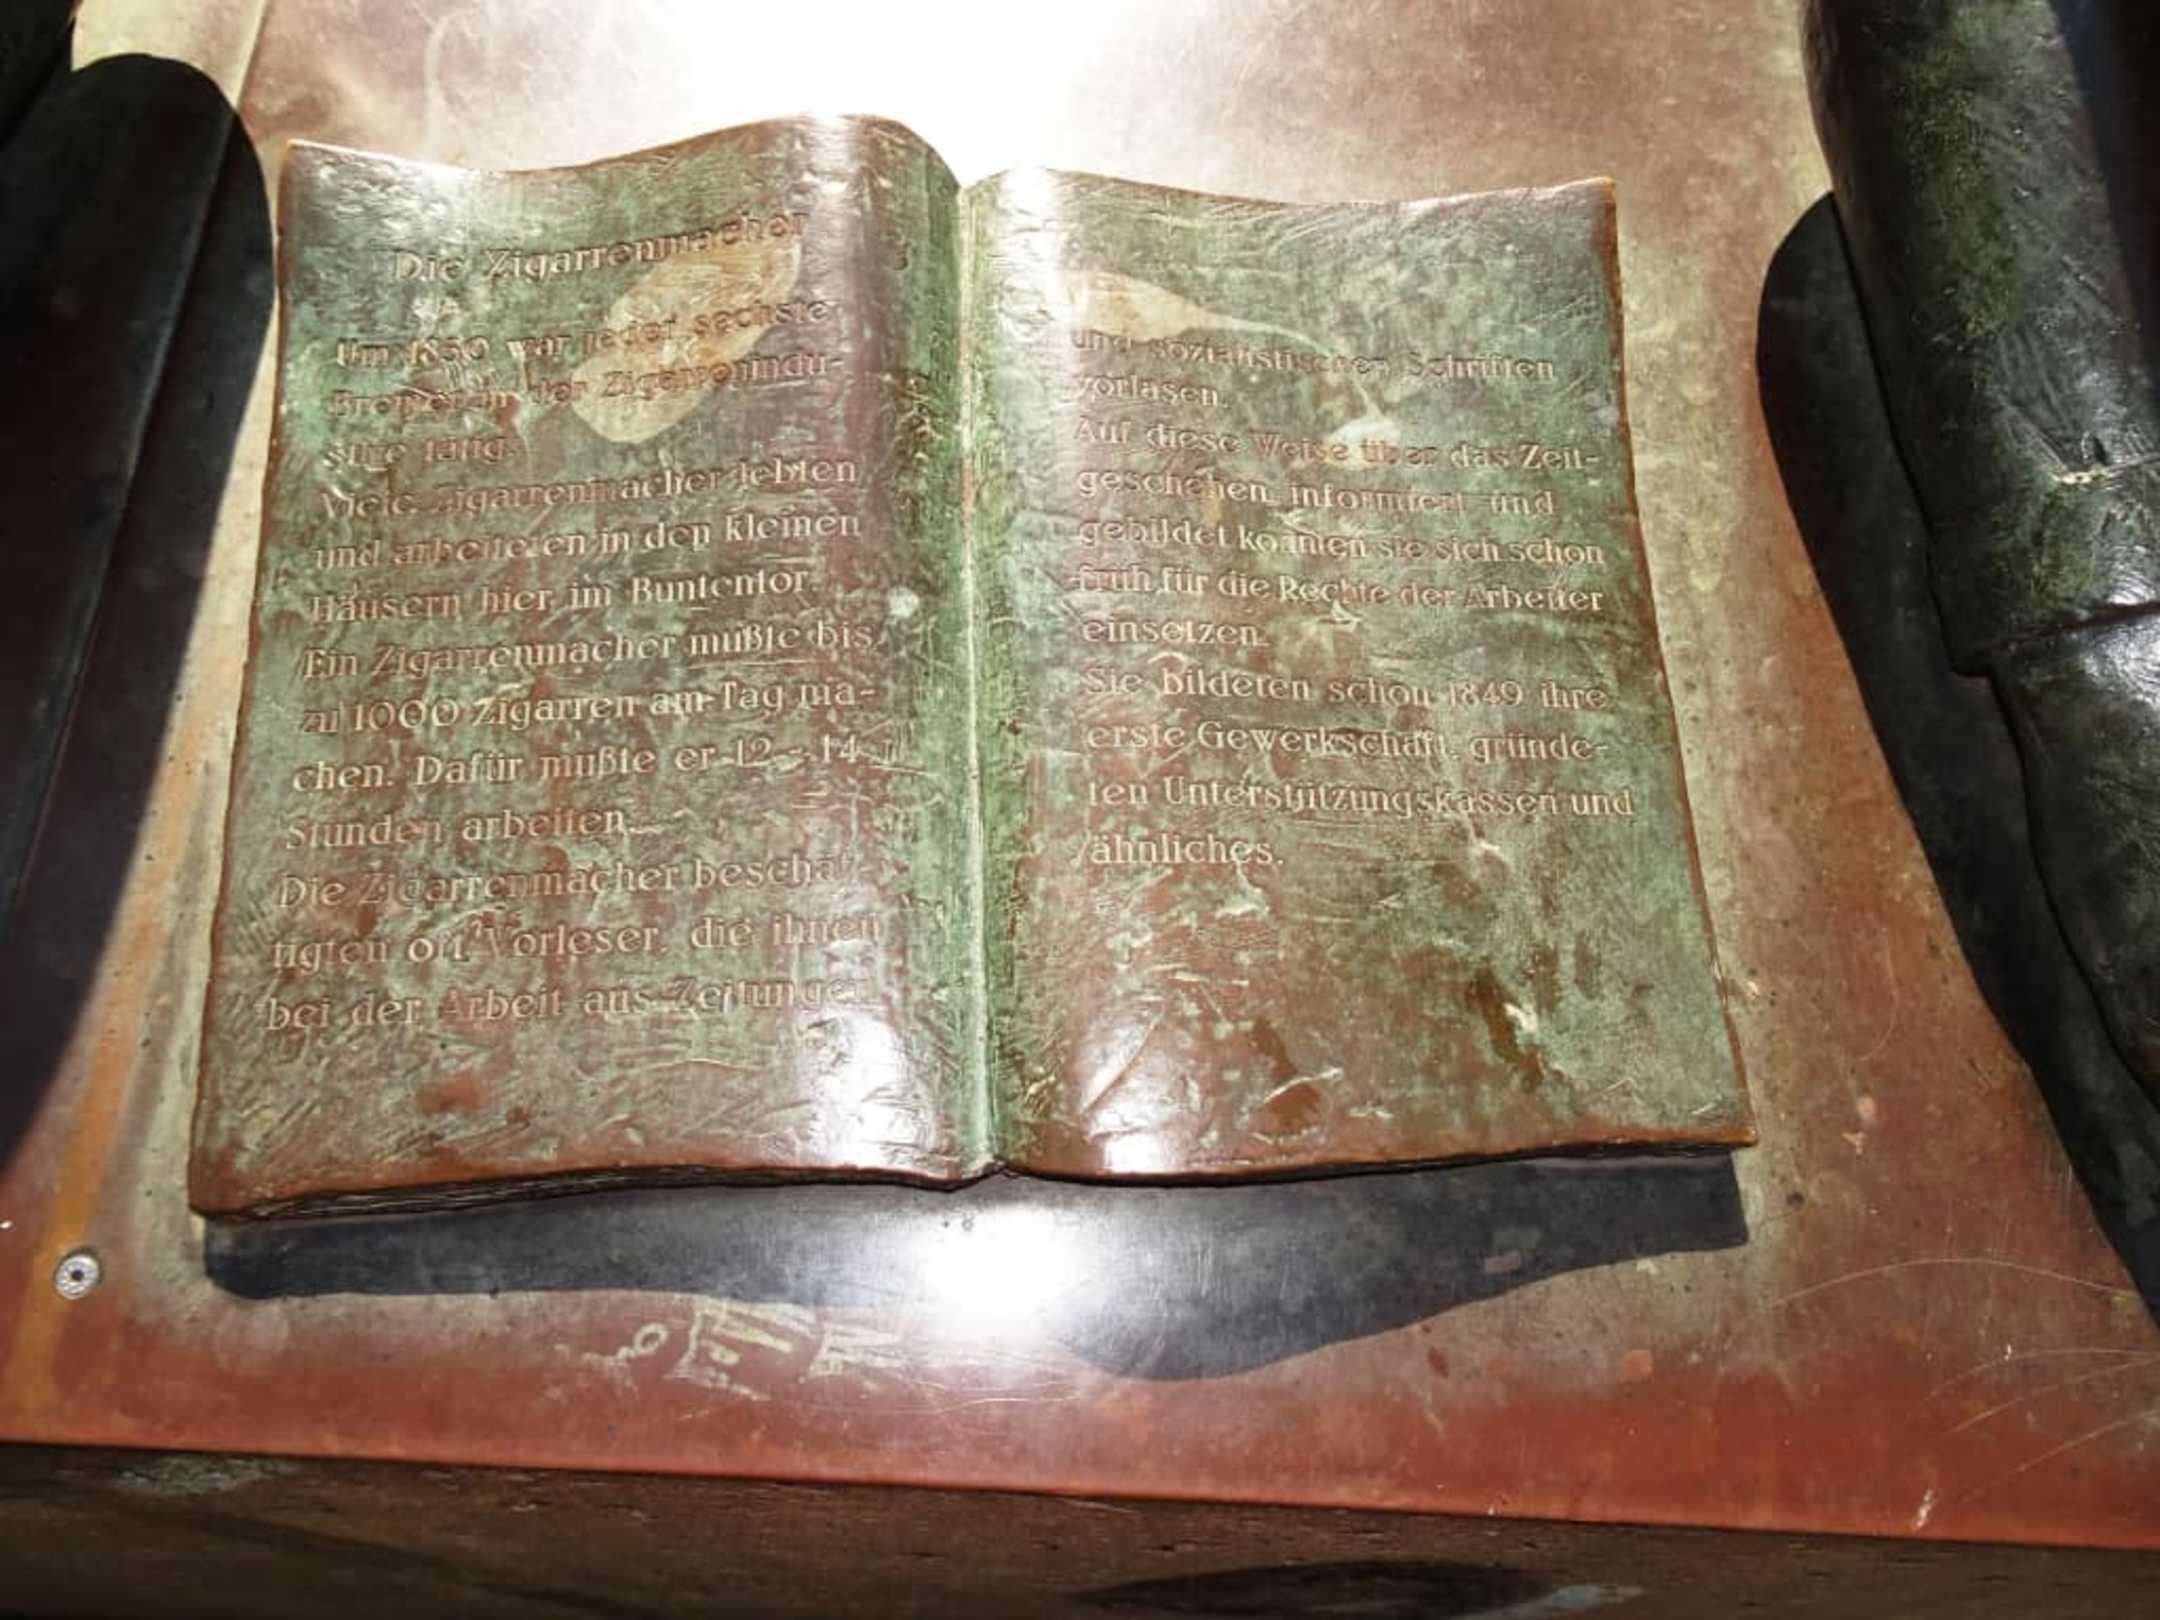 Die Zigarrenmacher
Um 1850 war jeder sechste
Bremer in der Zigarrenindu-
strie tätig.
Viele Zigarrenmacher lebten
und arbeiteten in den kleinen
Häusern hier im Buntentor.
Ein Zigarrenmacher mußte bis
zu 1000 Zigarren am Tag ma-
chen. Dafür mußte er 12 - 14
Stunden arbeiten.
Die Zigarrenmacher beschäf-
tigten oft Vorleser, die ihnen
bei der Arbeit aus Zeitungen
und sozialistischen Schriften
vorlasen.
Auf diese Weise über das Zeit-
geschehen informiert und
gebildet konnten sie sich schon
früh für die Rechte der Arbeiter
einsetzen.
Sie bildeten schon 1849 ihre
erste Gewerkschaft, gründe-
ten Unterstützungskassen und
ähnliches.